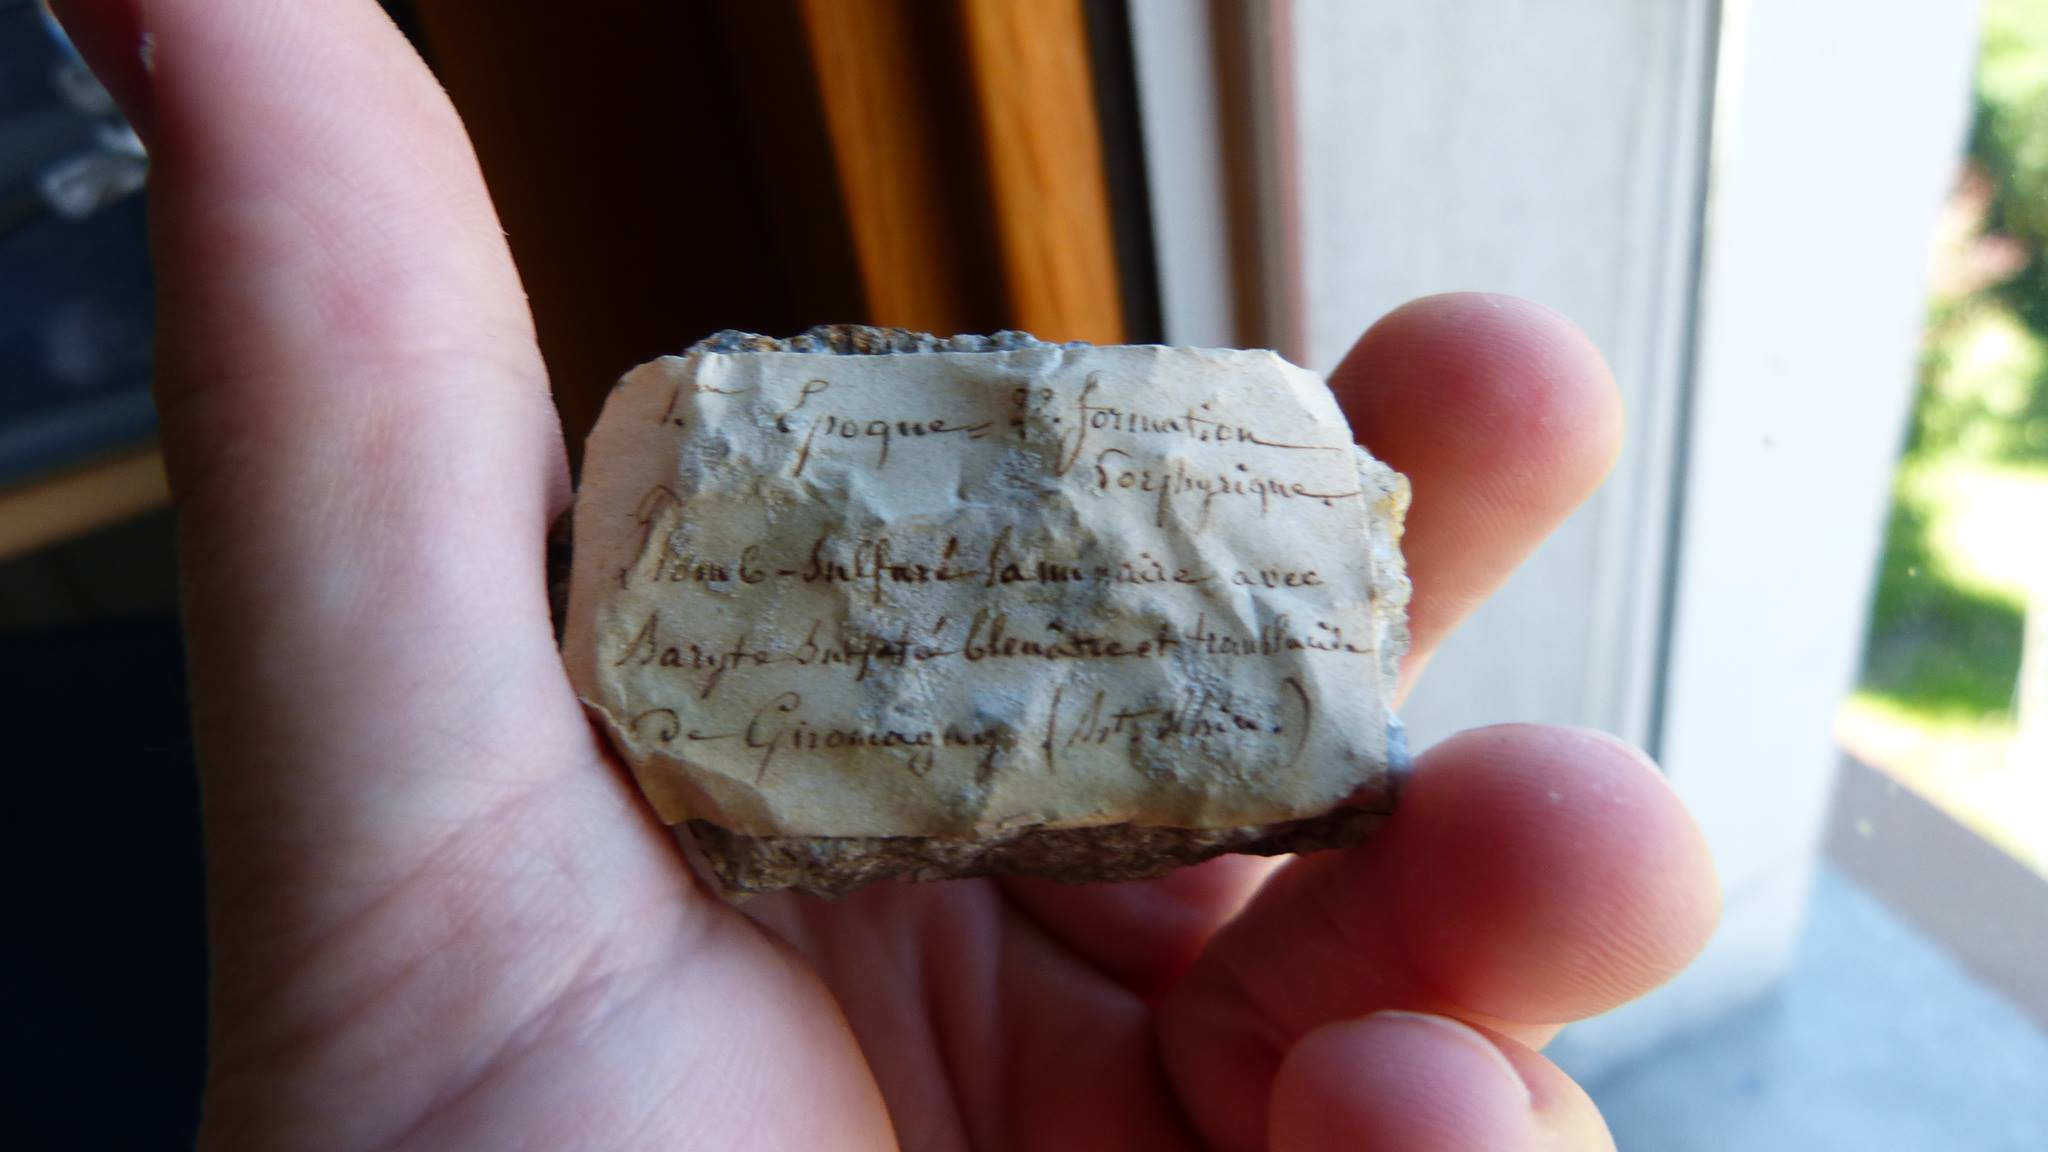 1.re Epoque = 2e. formation
Porphyrique.
Plomb-Sulfuré laminaire avec
Baryte Sulfaté bleuâtre et translucide
de Giromagny (   Rhin.)